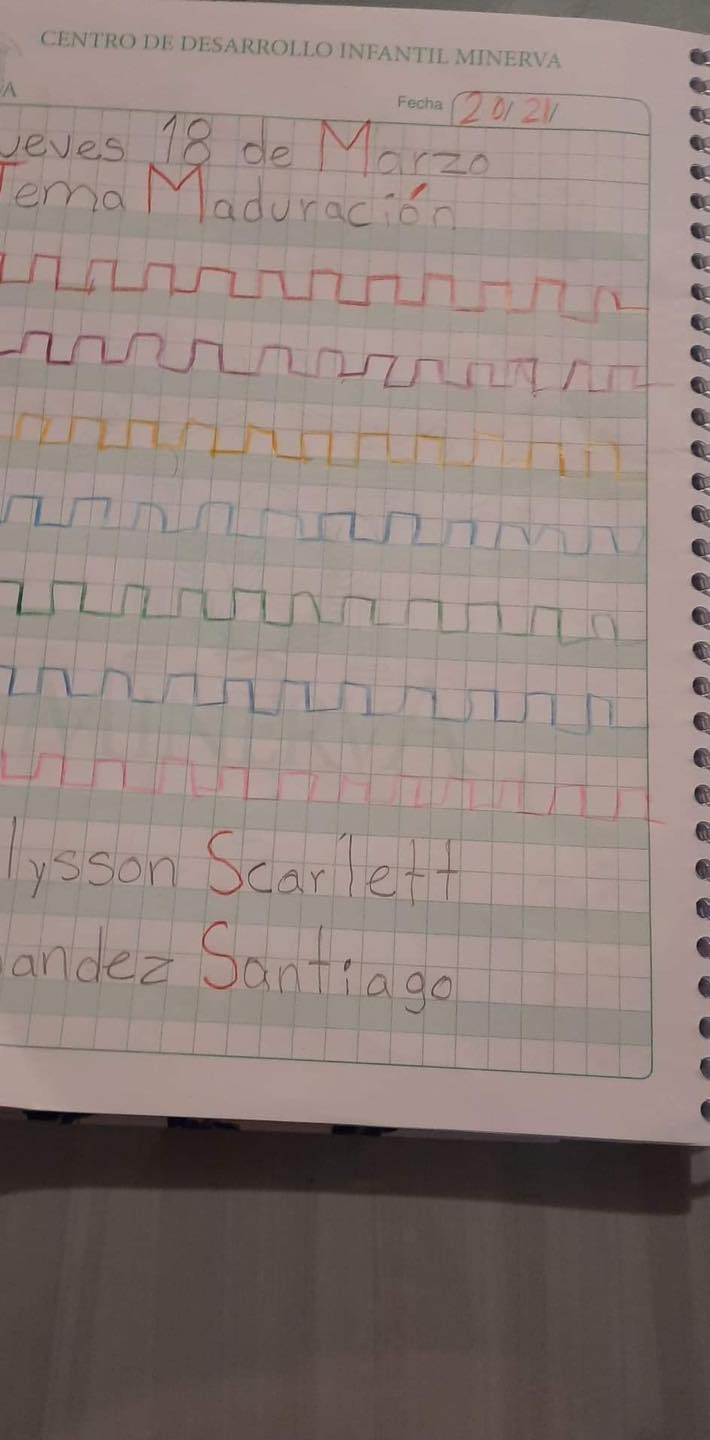 CENTRO DE DESARROLLO INFANTIL MINERVA
Fecha 20/21/
ueves 18 de Marzo
Tema Maduración
lysson Scarlett
andez Santiago